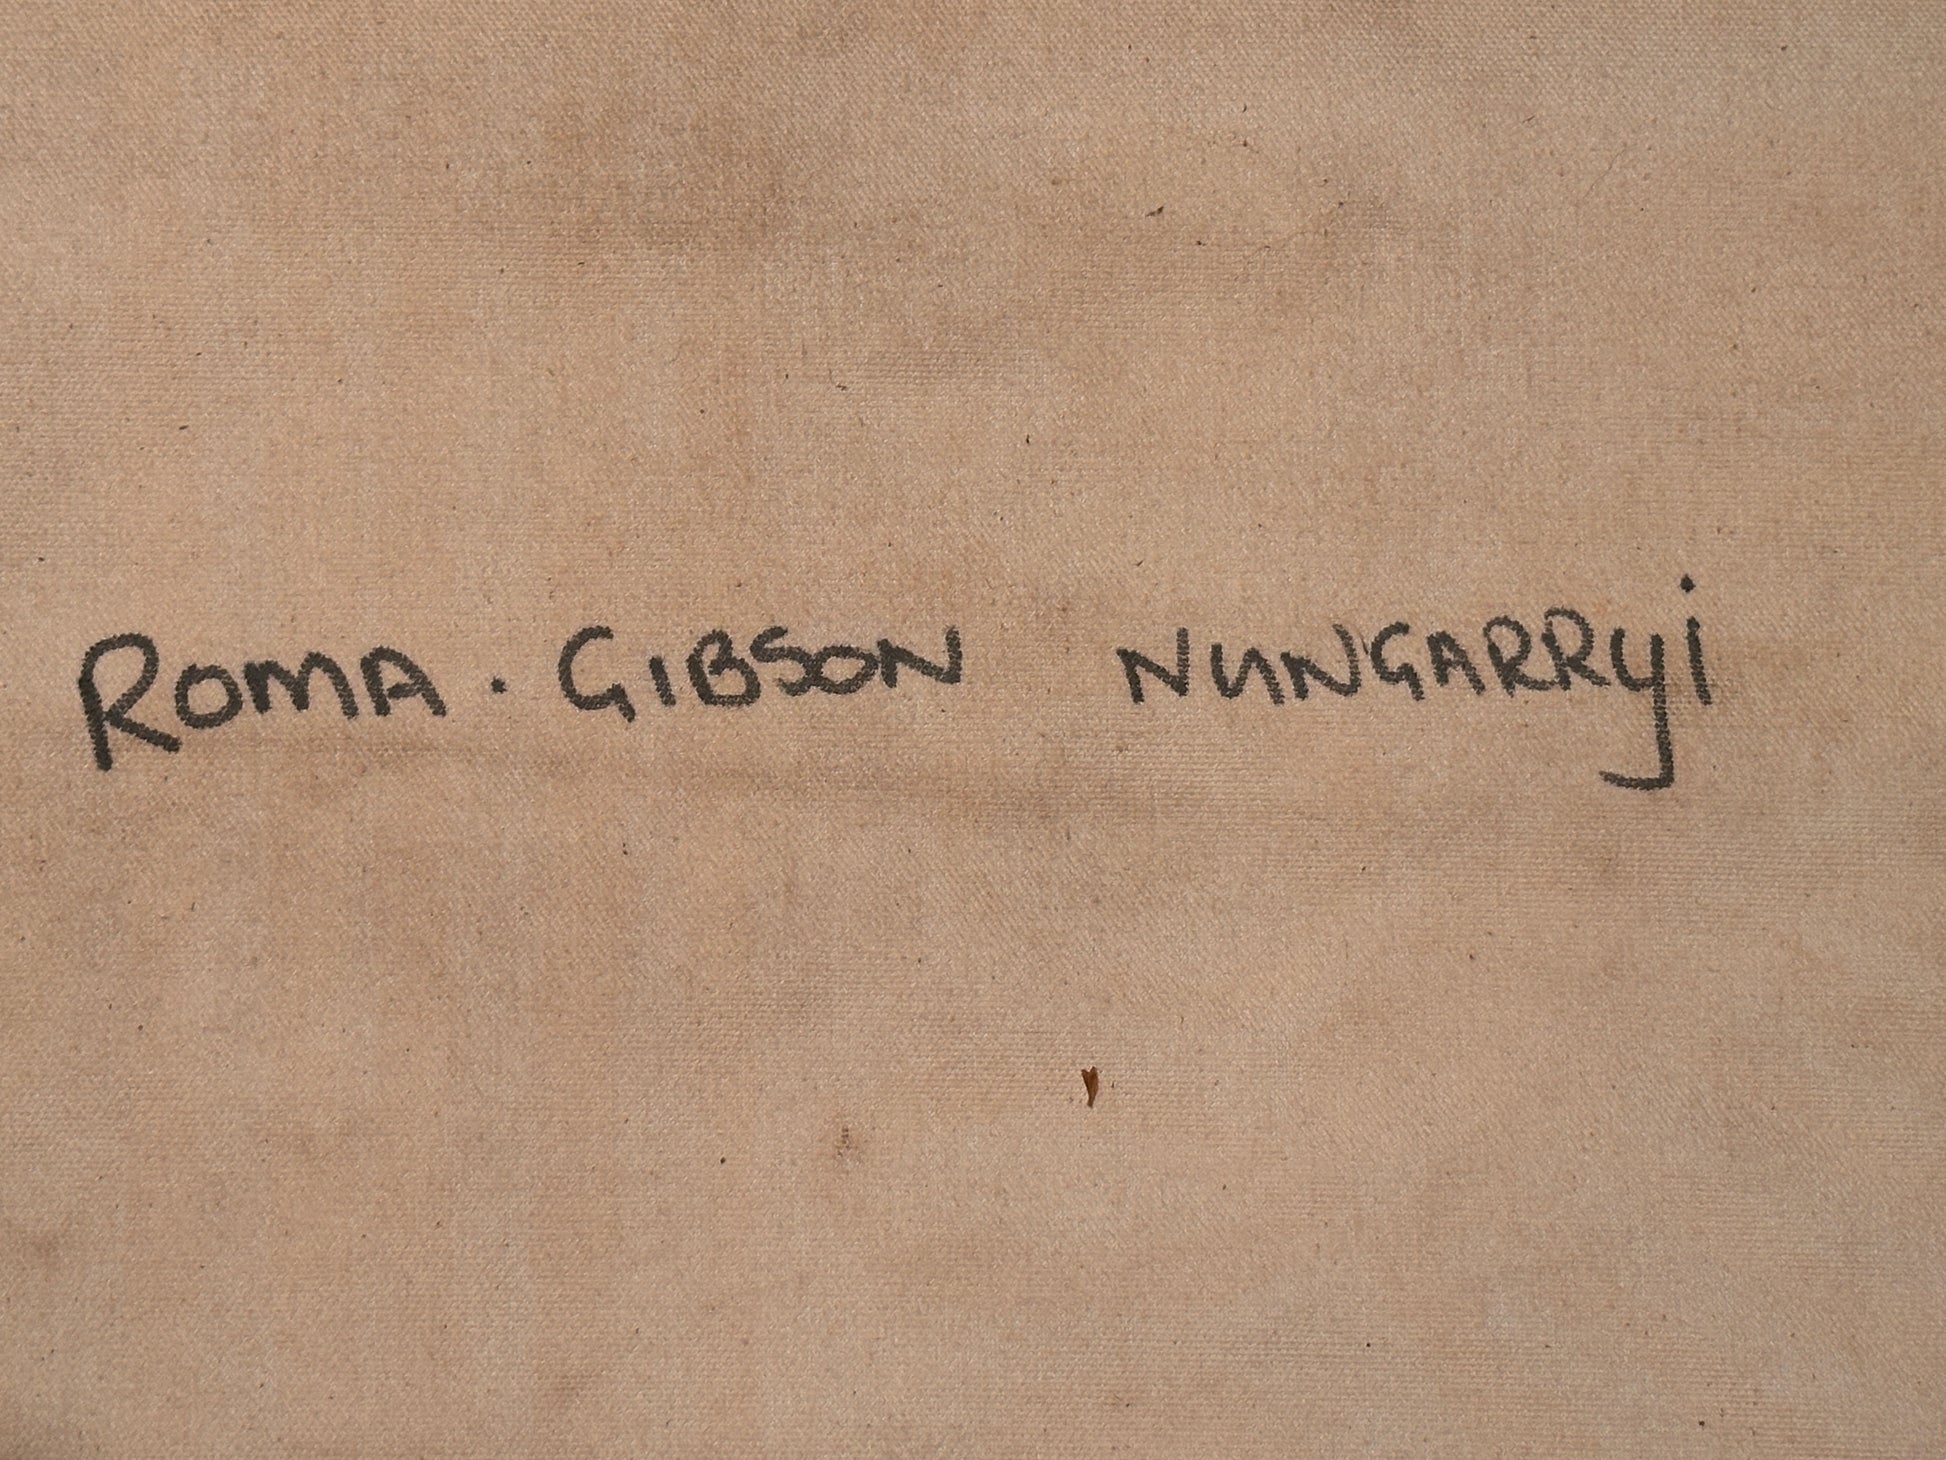 ROMA . GIBSON NUNGARRYi